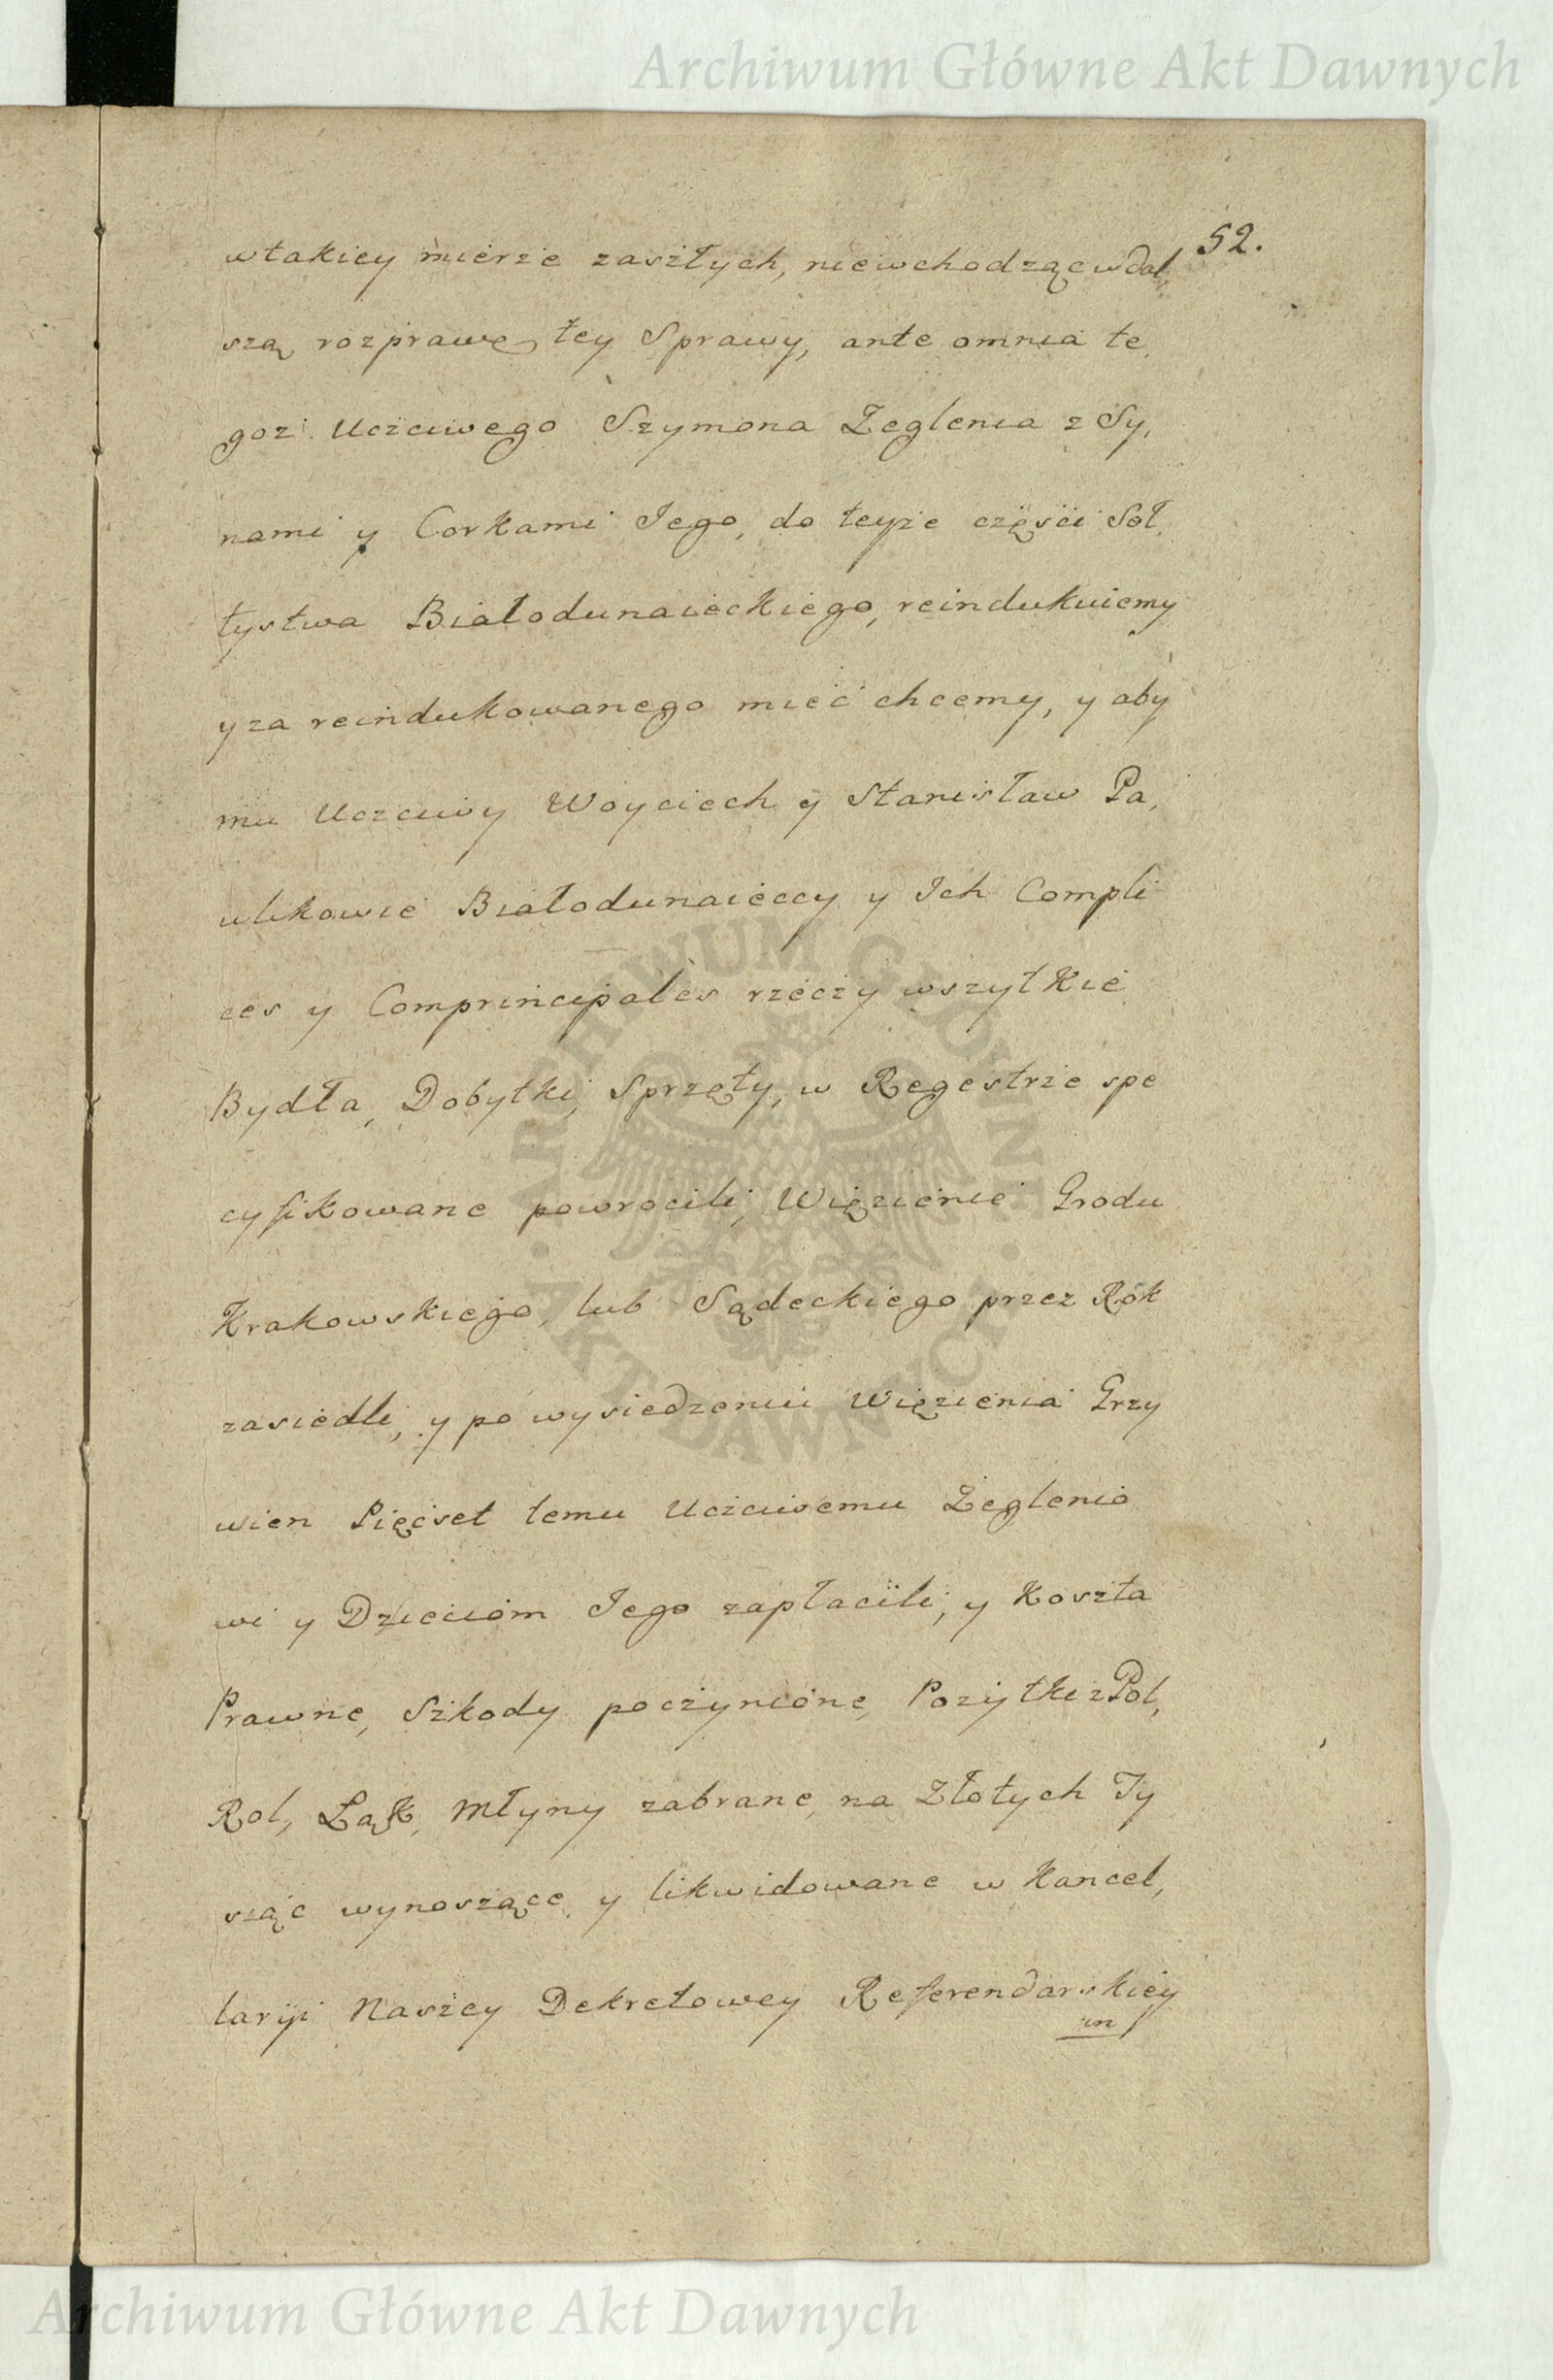 Archiwum Główne Akt Dawnych
52.
wtakiey mierze zaszłych, niewchodząc wdal,
szą rozprawę tey Sprawy, ante omnia te,
goż Uczciwego Szymona Zeglenia z Sy,
nami y Corkami Jego, do teyże części Soł,
tystwa Białodunaieckiego, reindukuiemy
y za reindukowanego mieć chcemy, y aby
mu Uczciwy Woyciech y Stanisław Pa,
ulikowie Białodunaieccy y Ich Compli
ces y Comprincipales rzeczy wszytkie
Bydła, Dobytki, Sprzęty, w Regestrze spe
cyfikowane powrocili, Więzienie Grodu
Krakowskiego, lub Sądeckiego przez Rok
zasiedli, y po wysiedzeniu Więzienia Grzy
wien Pięćset temu Uczciwemu Żeglenio
wi y Dzieciom Jego zapłacili, y Koszta
Prawne, Szkody poczynione, Pożytki z Pol,
Rol, Łąk, Młyny zabrane, na Złotych Ty
sząc wynoszące y likwidowane w Kancel,
laryi Naszey Dekretowey Referendarskiey
ARCHIWUM GŁÓWNE · AKT DAWNYCH ·
Archiwum Główne Akt Dawnych